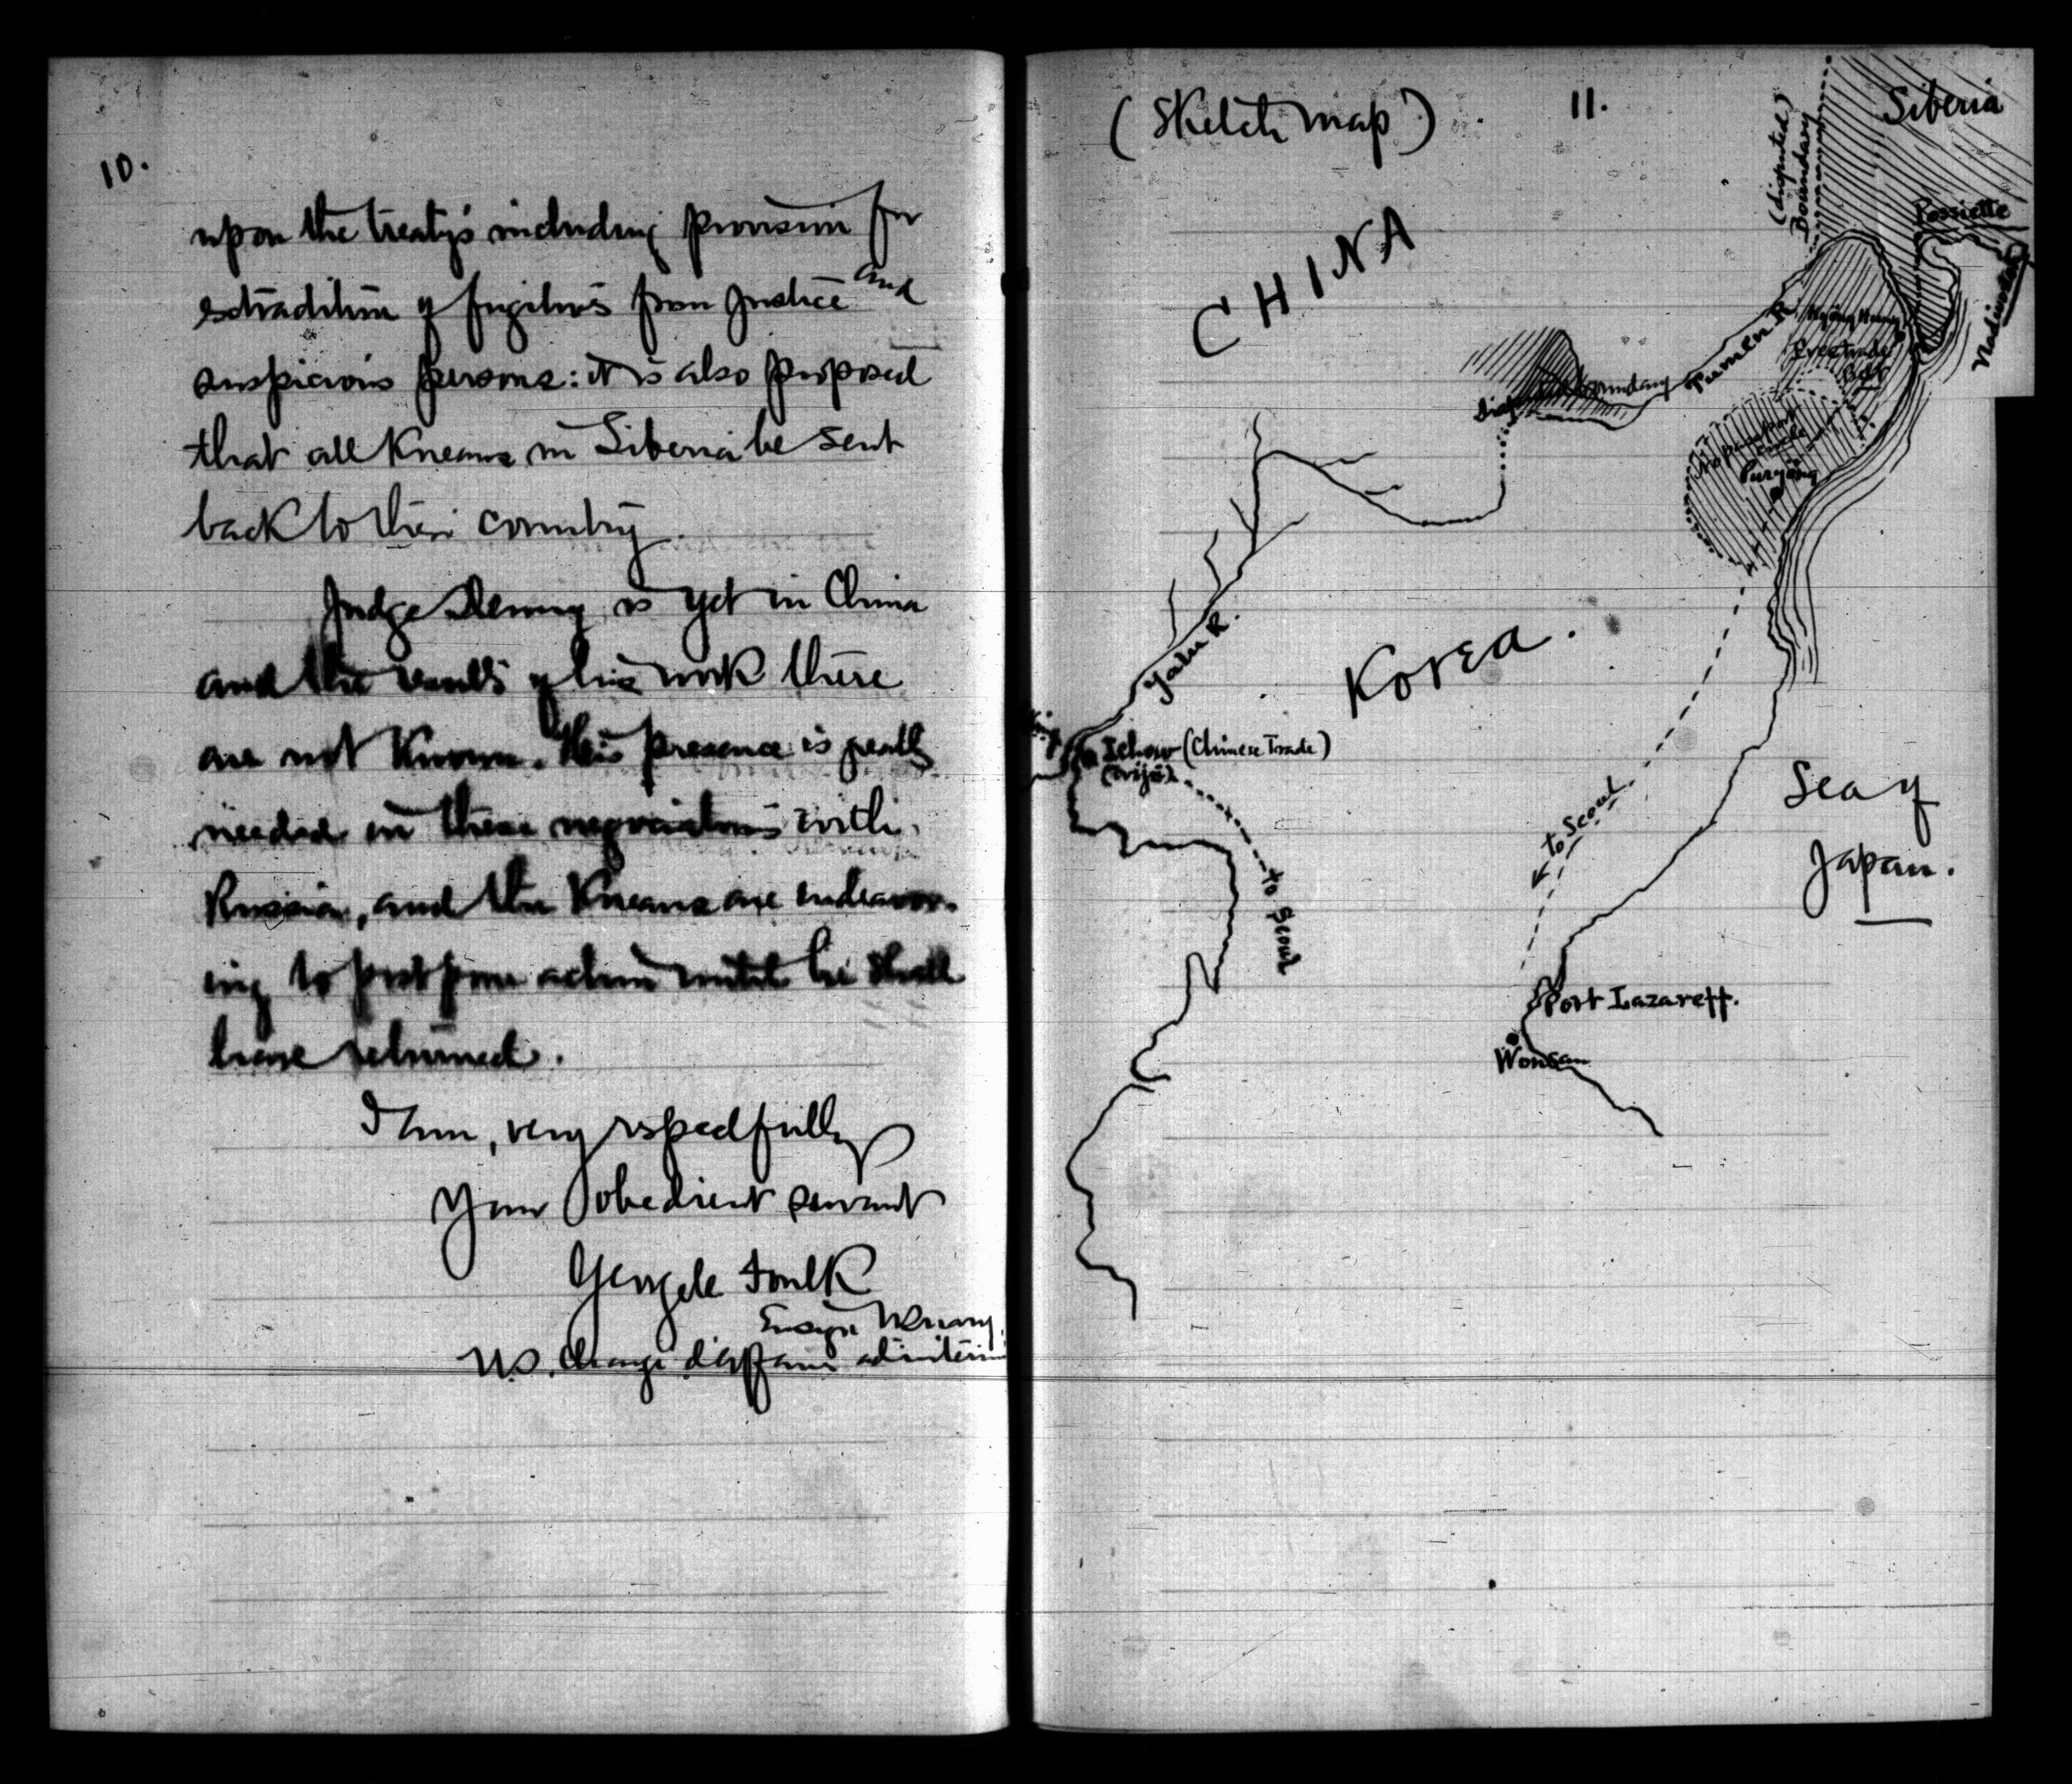 10.
upon the treaty's including provision for
extradition of fugitives from justice and
suspicious persons: it is also proposed
that all Koreans in Siberia be sent
back to their country.
Judge Denny is yet in China
and the results of his work there
are not known. His presence is greatly
needed in these negociations with
Russia, and the Koreans are endeavor-
ing to postpone action until he shall
have returned.
I am, very respectfully
Your obedient servant
George C. Foulk
Ensign U.S. Navy.
U.S. Chargé d'affaires ad interim
(Sketch map)
11.
Siberia
(disputed)
Boundary
Possiette
Vladivostok
CHINA
Tumen R.
Kyöng Hung
Free trade
Belt
boundary
Puryöng
Yalu R.
Korea.
Ichow (Chinese Trade)
(Wiju)
to Seoul
to Seoul
Sea of
Japan.
Port Lazareff.
Wonsan